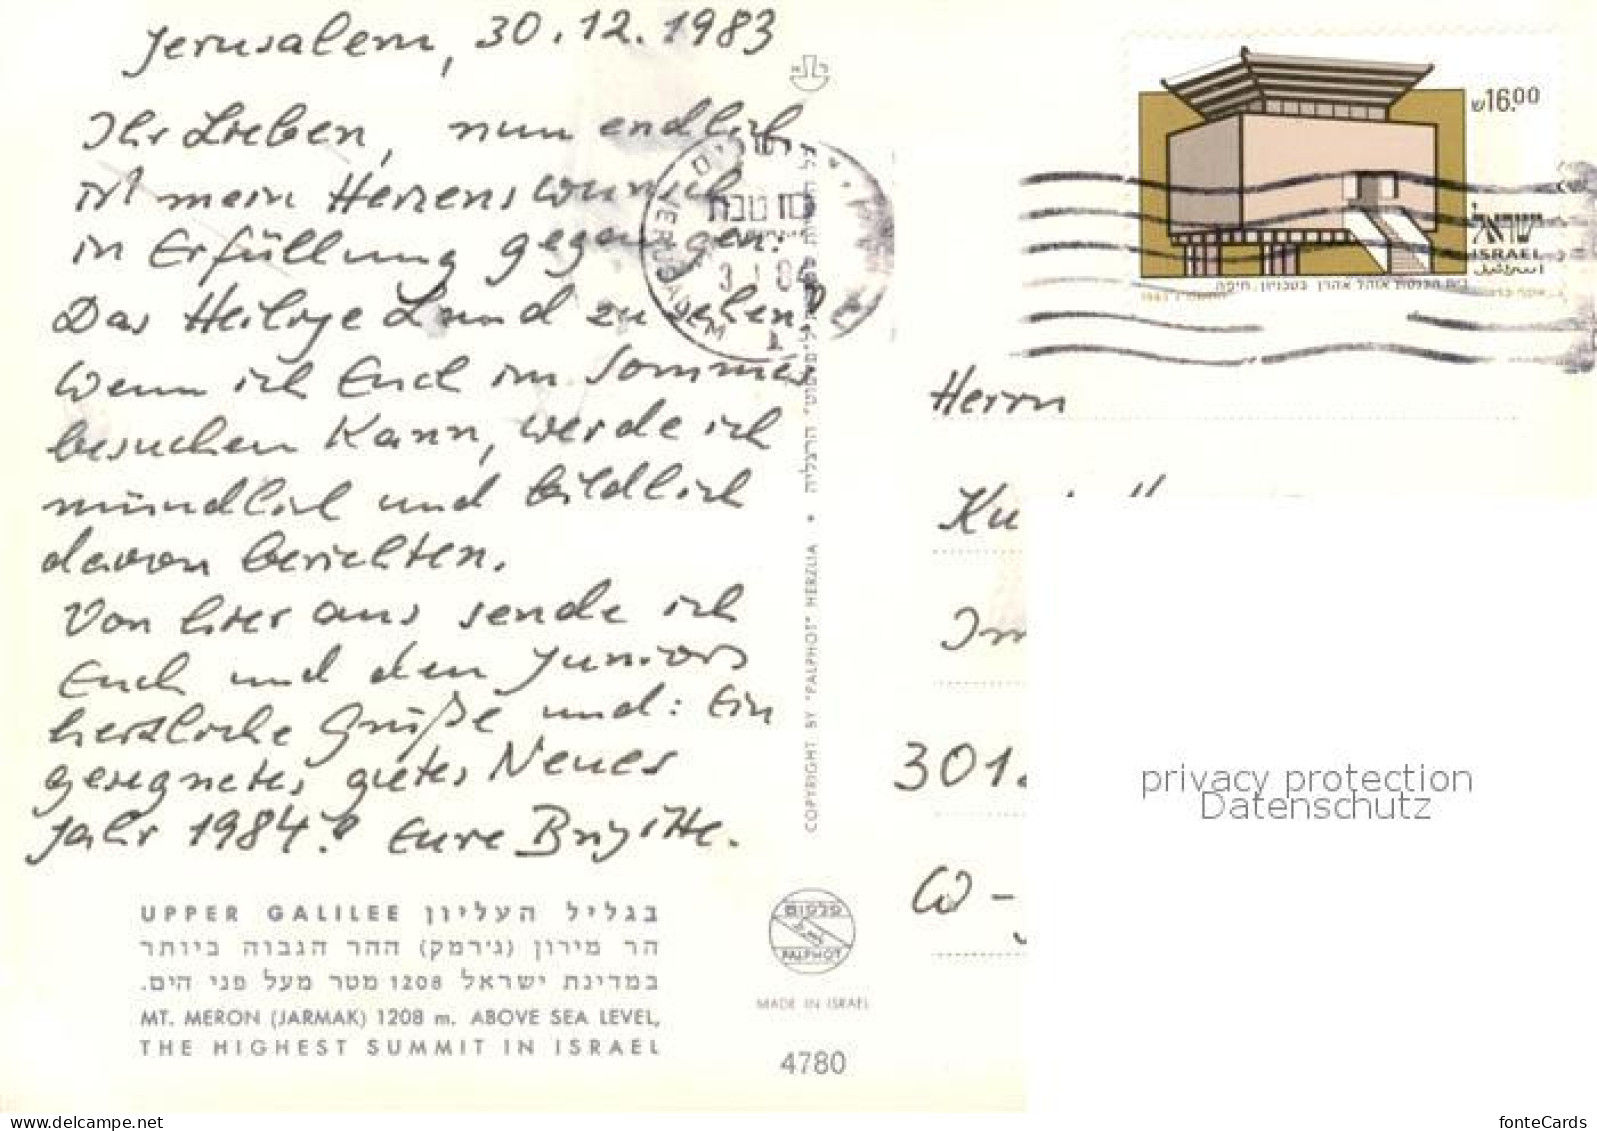 Jerusalem, 30.12.1983
Ihr Lieben, nun endlich
ist mein Herzenswunsch
in Erfüllung gegangen:
Das Heilige Land zu sehen!
Wenn ich Euch im Sommer
besuchen kann, werde ich
mündlich und bildlich
davon berichten.
Von hier aus sende ich
Euch und den Juniors
herzliche Grüße und: Ein
gesegnetes, gutes Neues
Jahr 1984! Eure Brigitte.
UPPER GALILEE בגליל העליון
הר מירון (ג'רמק) ההר הגבוה ביותר
במדינת ישראל 1208 מטר מעל פני הים.
MT. MERON (JARMAK) 1208 m. ABOVE SEA LEVEL,
THE HIGHEST SUMMIT IN ISRAEL
COPYRIGHT BY "PALPHOT" HERZLIA • "פלפוט" הרצליה
פלפוט
PALPHOT
MADE IN ISRAEL
4780
JERUSALEM
ש16.00
ישראל
ISRAEL
اسرائيل
בית הכנסת אוהל אהרן בטכניון, חיפה
Herrn
Ku
301
W-
privacy protection
Datenschutz
delcampe.net
fonteCards